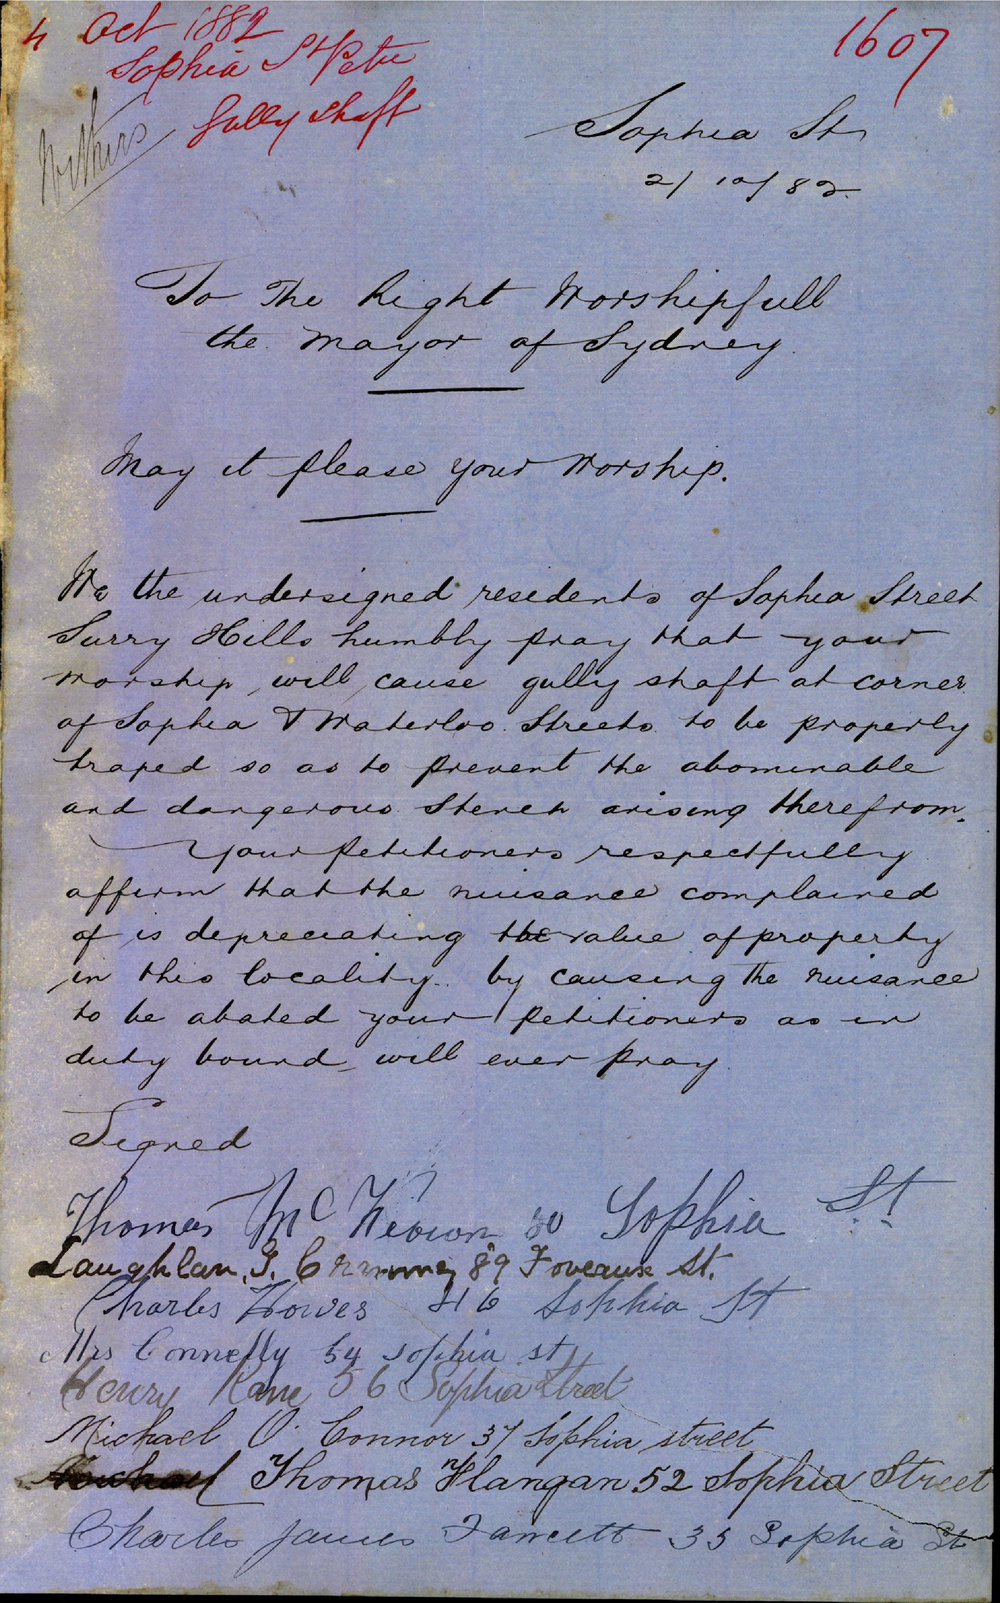 4 Oct 1882
Sophia St Petn
Gully Shaft
1607
Withers
Sophia St
2/10/82
To The Right Worshipfull
the Mayor of Sydney
May it please your Worship.
We the undersigned residents of Sophia Street
Surry Hills humbly pray that your
worship will cause gully shaft at corner
of Sophia & Waterloo Streets to be properly
traped so as to prevent the abominable
and dangerous Stench arising therefrom.
Your petitioners respectfully
affirm that the nuisance complained
of is depreciating the value of property
in this locality.. by causing the nuisance
to be abated your petitioners as in
duty bound will ever pray
Signed
Thomas McKeown 50 Sophia St.
Laughlan. J. 89 Foveaux St.
Charles Howes 46 Sophia St
Mrs Connelly 54 sophia st
Henry Kane 56 Sophia Street
Michael O. Connor 37 Sophia street
Michael Thomas Flangan 52 Sophia Street
Charles James Fawcett 35 Sophia St